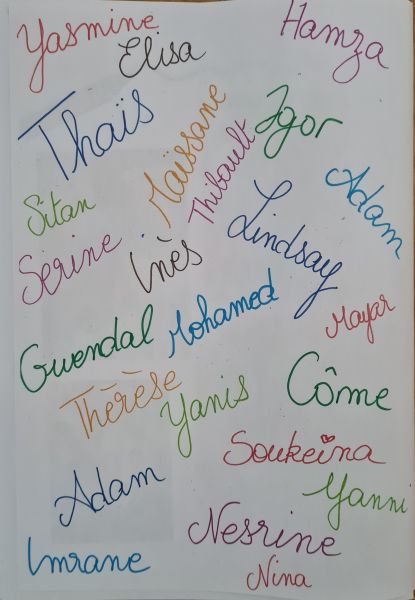 Yasmine
Hamza
Elisa
Thaïs
Maïssane
Igor
Thibault
Adam
Sitan
Lindsay
Serine
Inès
Mohamed
Mayar
Gwendal
Thérèse
Yanis
Côme
Soukeina
Adam
Yanni
Nesrine
Imrane
Nina